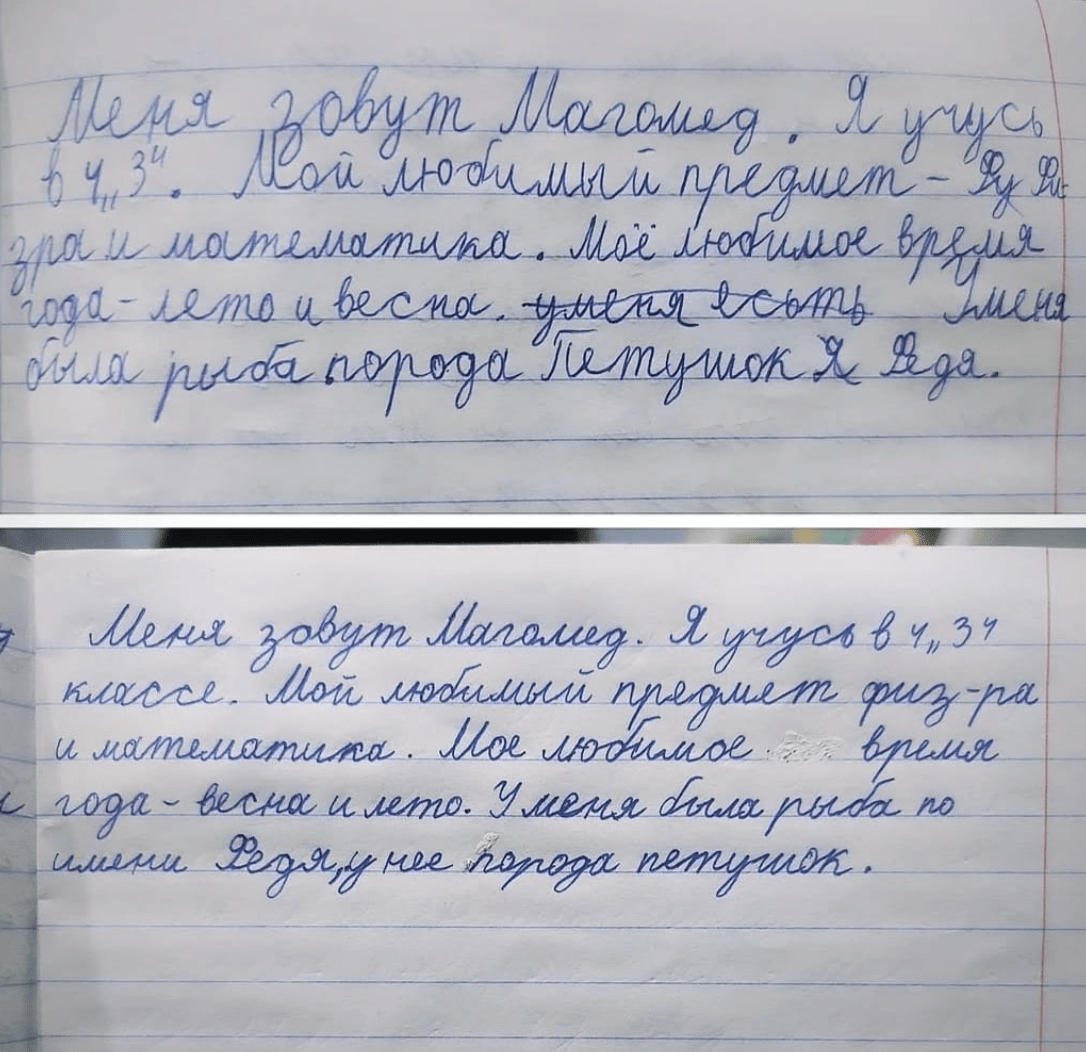 Меня зовут Магомед. Я учусь
в 4 „З“. Мой любимый предмет -
зра и математика. Моё любимое время
года - лето и весна. уменя есоть Уменя
была рыба порода Петушок Я Федя.
Меня зовут Магомед. Я учусь в 4 „З“
классе. Мой любимый предмет физ-ра
и математика. Мое любимое время
года - весна и лето. У меня была рыба по
имени Федя, у нее порода петушок.